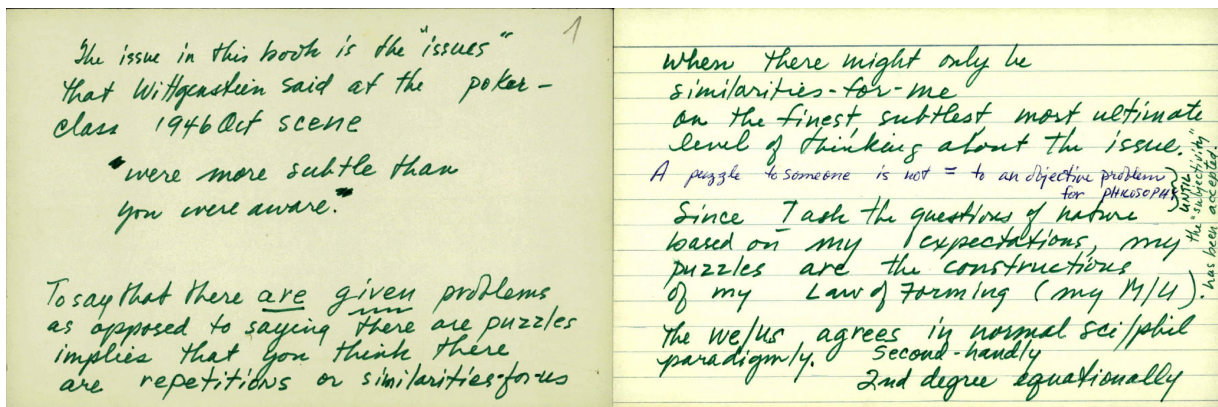 1
The issue in this book is the "issues"
that Wittgenstein said at the poker-
class 1946 Oct scene
"were more subtle than
you were aware."
To say that there are given problems
as opposed to saying there are puzzles
implies that you think there
are repetitions or similarities-for-us
when there might only be
similarities-for-me
on the finest, subtlest, most ultimate
level of thinking about the issue.
A puzzle to someone is not = to an objective problem
for PHILOSOPHY
UNTIL
the "subjectivity"
has been accepted.
Since I ask the questions of nature
based on my expectations, my
puzzles are the constructions
of my Law of Forming (my M/U).
The we/us agrees in normal sci/phil
paradigmly. Second-handly
2nd degree equationally